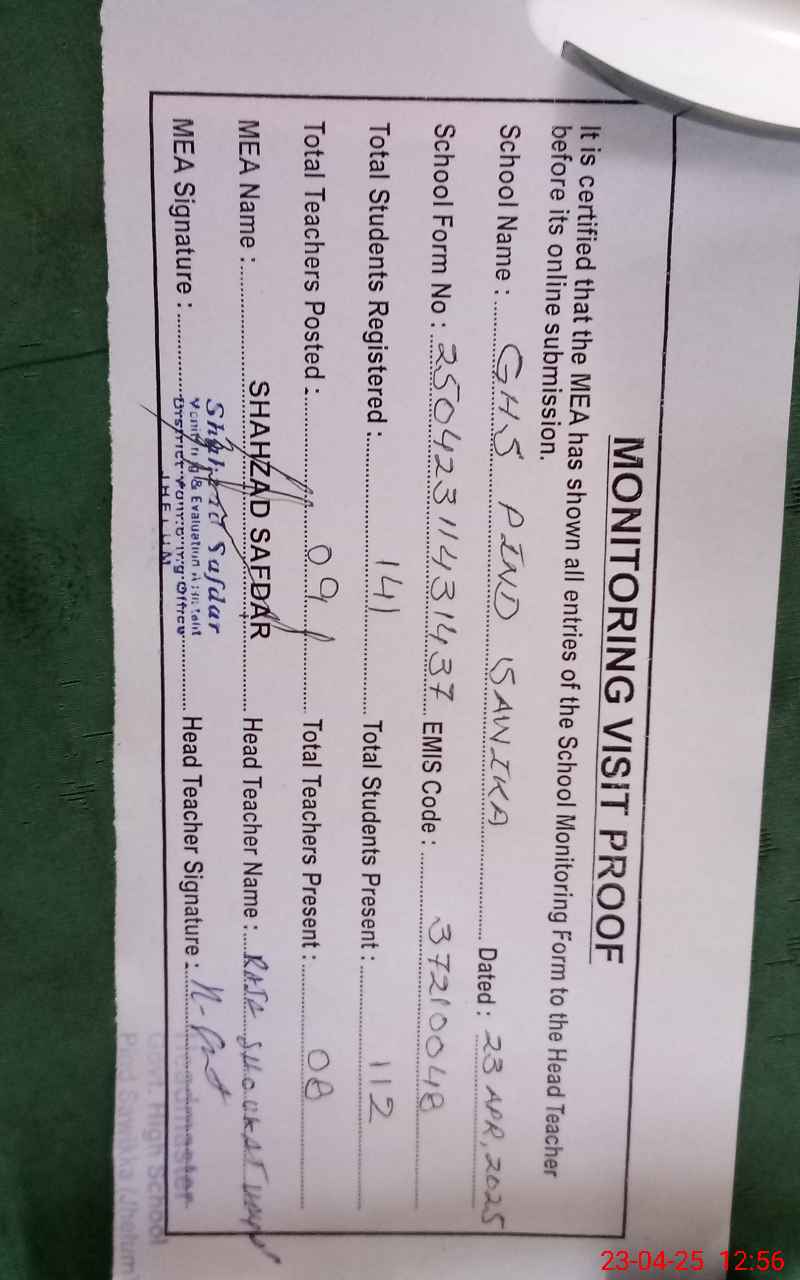 MONITORING VISIT PROOF
It is certified that the MEA has shown all entries of the School Monitoring Form to the Head Teacher
before its online submission.
School Name : GHS PIND SAWIKA Dated : 23 APR, 2025
School Form No : 25042311431437 EMIS Code : 37210048
Total Students Registered : 141 Total Students Present : 112
Total Teachers Posted : 09 Total Teachers Present : 08
MEA Name : SHAHZAD SAFDAR Head Teacher Name : RAJA SHOUKAT
MEA Signature : Head Teacher Signature :
Shahzad Safdar
Monitoring & Evaluation Assistant
District Monitoring Officer
JHELUM
Headmaster
Govt. High School
Pind Sawikka (Jhelum
23-04-25 12:56